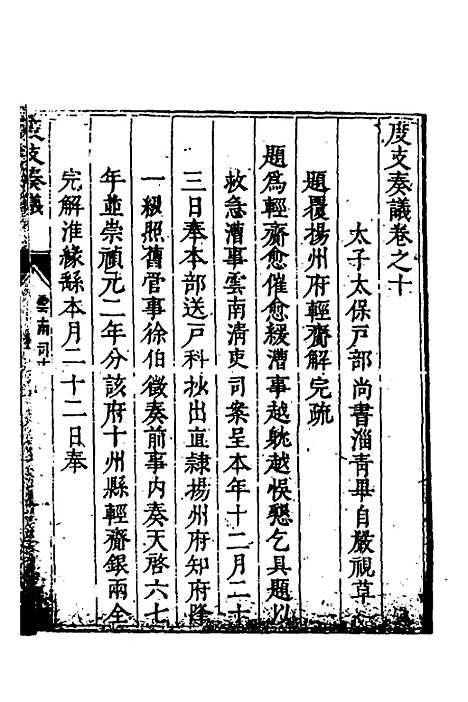 度支奏議卷之十
太子太保戶部尚書淄青畢自嚴視草
題覆揚州府輕齎解完疏
題爲輕齎愈催愈緩漕事越躭越悞懇乞具題以
救急漕事雲南清吏司案呈本年十二月二十
三日奉本部送戶科抄出直隷揚州府知府降
一級照舊管事徐伯徵奏前事內奏天啓六七
年並崇禎元二年分該府十州縣輕齎銀兩全
完解淮緣繇本月二十二日奉
度支奏議
雲南司十